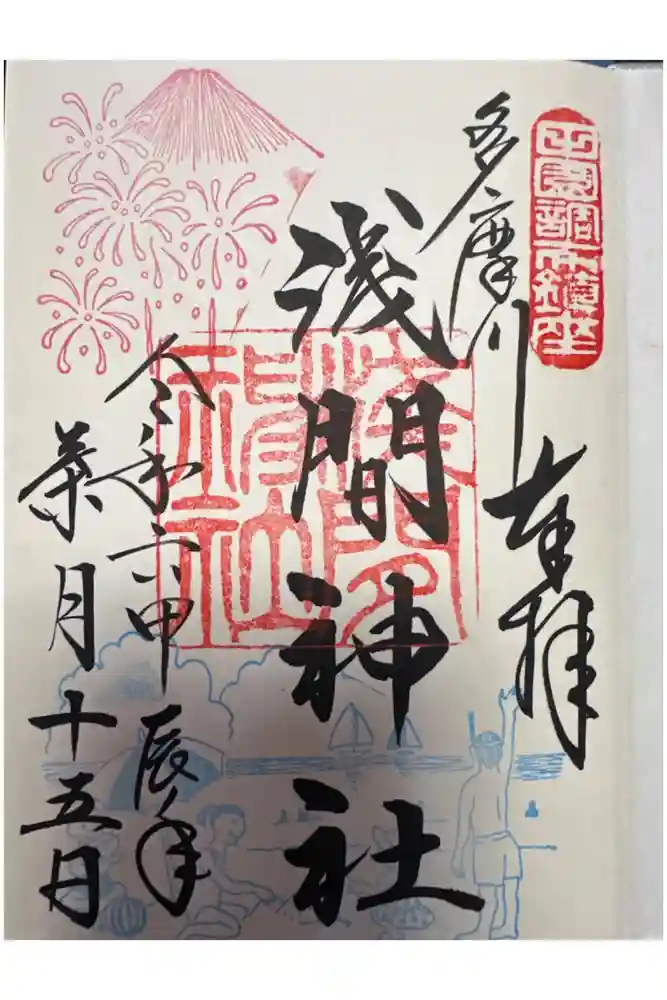 田園調布鎮座
奉拝
多摩川
浅間神社
浅間神社
令和六甲辰年
葉月十五日